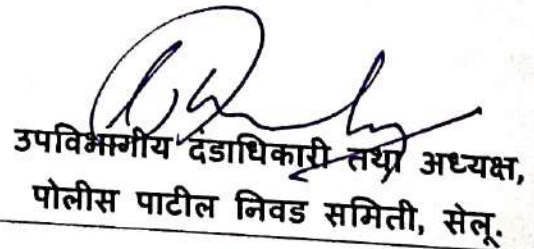 उपविभागीय दंडाधिकारी तथा अध्यक्ष,
पोलीस पाटील निवड समिती, सेलू.